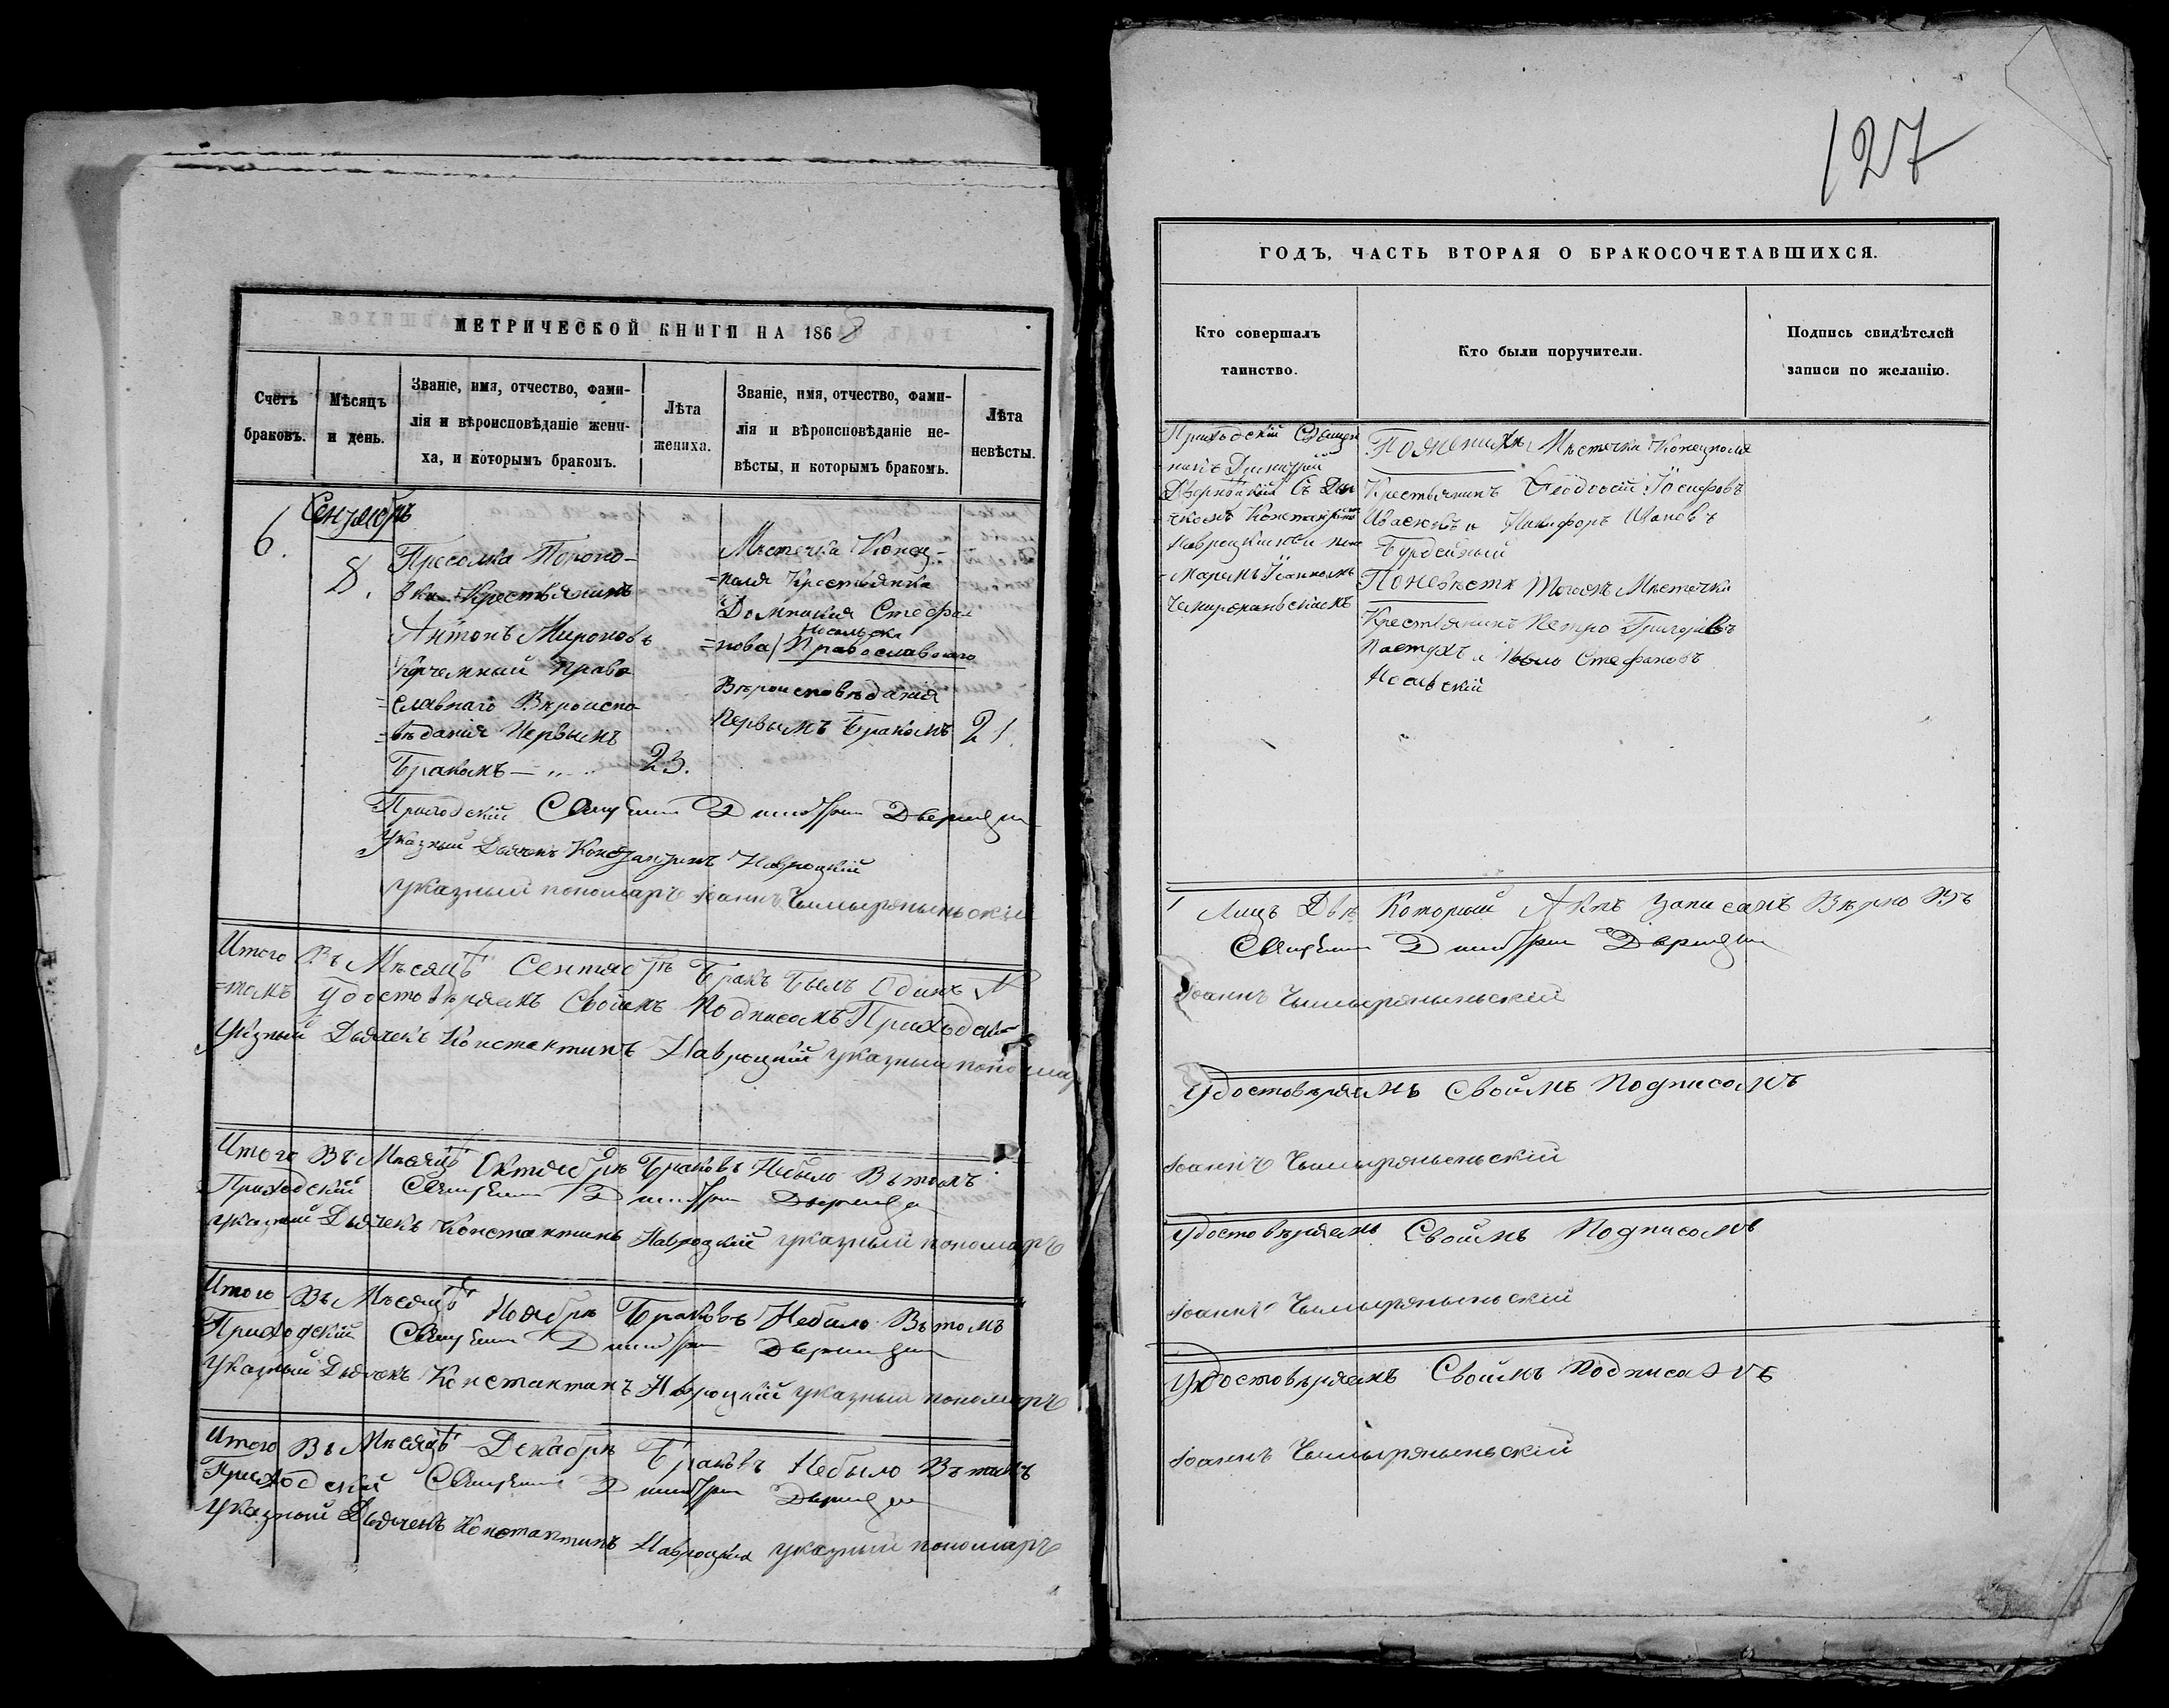 МЕТРИЧЕСКОЙ КНИГИ НА 1868
Счетъ браковъ.
Мѣсяцъ и день.
Званіе, имя, отчество, фами-
лія и вѣроисповѣданіе жени-
ха, и которымъ бракомъ.
Лѣта жениха.
Званіе, имя, отчество, фами-
лія и вѣроисповѣданіе не-
вѣсты, и которымъ бракомъ.
Лѣта невѣсты.
6.
Сентябрь
8.
Крестьянинъ
Антонъ Мироновъ
Корчемный Право
=славнаго Вѣроиспо
=вѣданія Первымъ
Бракомъ
23.
Мѣстечка Конец-
=поля Крестьянка
Домникия Стефа
=нова Носальска Православнаго
Вѣроисповѣданія
Первымъ Бракомъ
21.
Приходскій Священ Димитрій
Указный Дьячекъ Константинъ Навроцкій
указный пономарь Іоаннъ
Итого Въ Мѣсяцѣ Сентябрѣ Бракъ Былъ Одинъ
=томъ Удостовѣряемъ Своимъ Подписомъ
Указный Дьячекъ Константинъ Навроцкій указный пономар
Итого Въ Мѣсяцѣ Октябрѣ Браковъ Небыло Вътомъ
Приходскій Священ Димитрій
указный Дьячекъ Константинъ Навроцкій указный пономарь
Итого Въ Мѣсяцѣ Ноябрѣ Браковъ Небыло Вътомъ
Приходскій Священ Димитрій
Указный Дьячекъ Константинъ Навроцкій указный пономарь
Итого Въ Мѣсяцѣ Декабрѣ Браковъ Небыло Вътомъ
Приходскій Священ Димитрій
Указный Дьячекъ Константинъ Навроцкій указный пономарь
127
ГОДЪ, ЧАСТЬ ВТОРАЯ О БРАКОСОЧЕТАВШИХСЯ.
Кто совершалъ
таинство.
Кто были поручители.
Подпись свидѣтелей
записи по желанію.
Приходскій Священ
=никъ Димитрій
Съ Дья
=чкомъ Константином
Навроцкимъ и поно
=маремъ Іоанномъ
По Женихѣ Мѣстечка Конецполя
Крестьянинъ Феодосій Іосифовъ
и Никифоръ
Бурдейный
По невѣсте Тогожъ Мѣстечка
Крестьянинъ Петро Григорьевъ
Пастухъ и Стефановъ
Носальскій
Лицъ Двѣ Который Актъ Записанъ Вѣрно Въ
Священ Димитрій
Іоаннъ
Удостовѣряемъ Своимъ Подписомъ
Іоаннъ
Удостовѣряемъ Своимъ Подписомъ
Іоаннъ
Удостовѣряемъ Своимъ Подписомъ
Іоаннъ